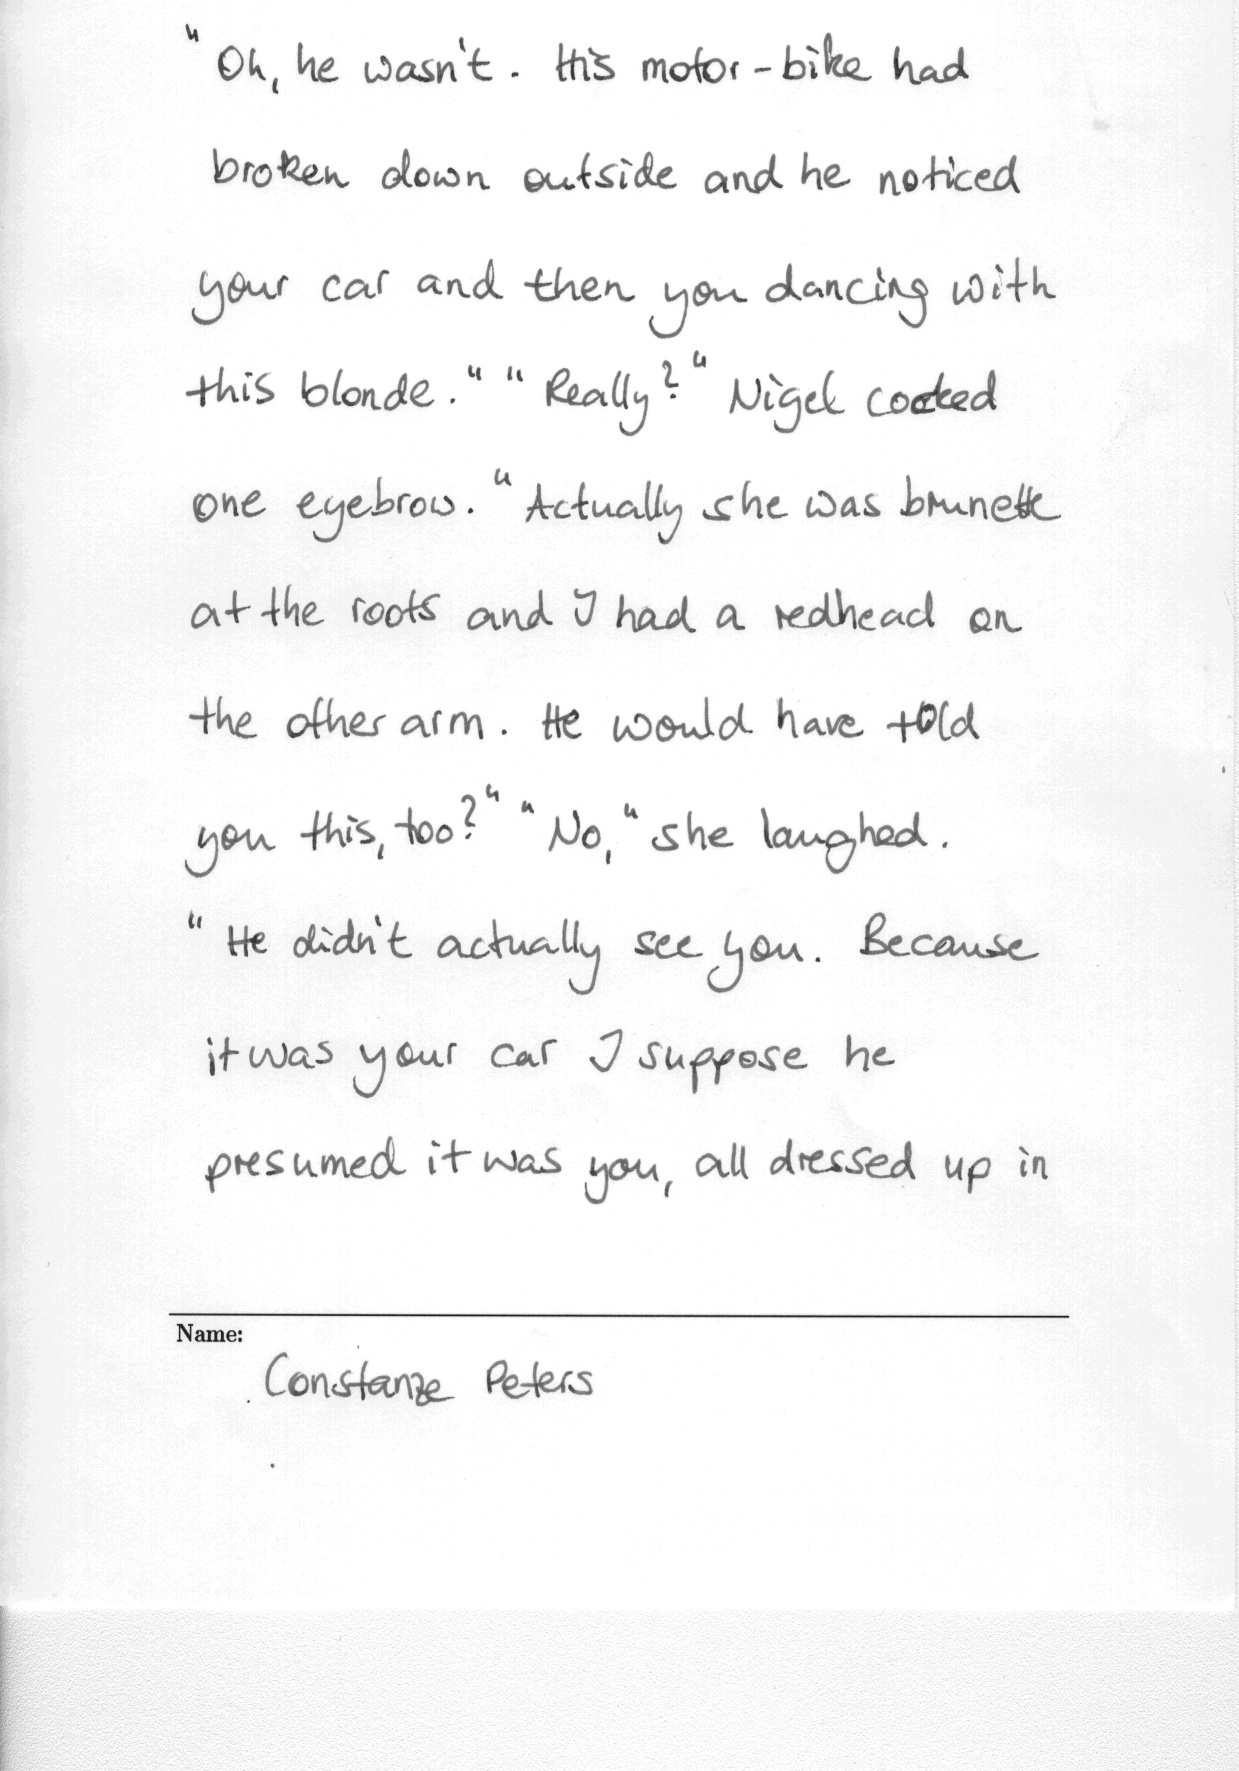 "Oh, he wasn't. His motor-bike had
broken down outside and he noticed
your car and then you dancing with
this blonde." "Really?" Nigel cocked
one eyebrow. "Actually she was brunette
at the roots and I had a redhead on
the other arm. He would have told
you this, too?" "No," she laughed.
"He didn't actually see you. Because
it was your car I suppose he
presumed it was you, all dressed up in
Name:
Constanze Peters